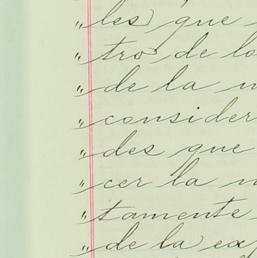 „les que
„tro de lo
„de la
„consider
„des que
„cer la
„tamente
„de la ex